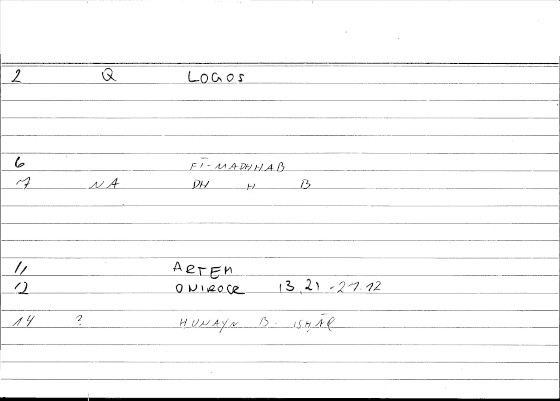 2 Q LOGOS
6 FĪ-MADHHAB
7 NA DH H B
11 ARTEM
12 ONIROCR 13,21-21.12
14 ? HUNAYN B. ISḤĀQ